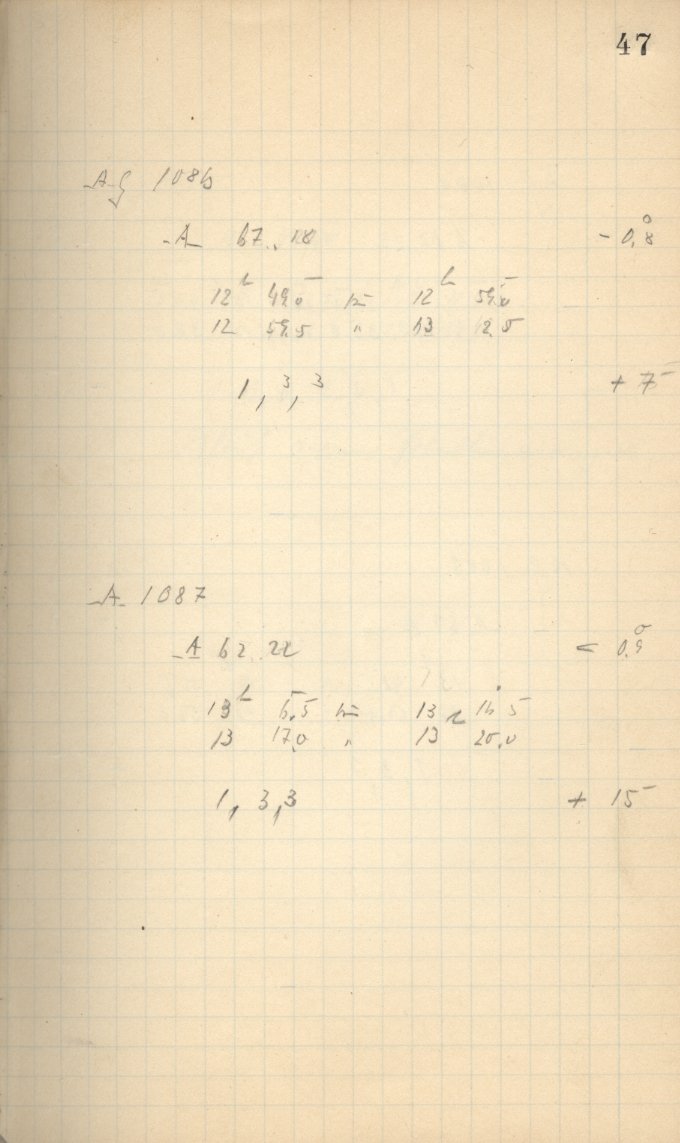 47
A 1086
A 67. 18 - 0,8°
12ʰ 49,0 bis 12ʰ 59,0
12 59,5 " 13 12,5
1, 3, 3 + 7
A 1087
A 62 22 < 0,9°
13ʰ 6,5 bis 13ʰ 16 5
13 17,0 " 13 20,0
1, 3, 3 + 15